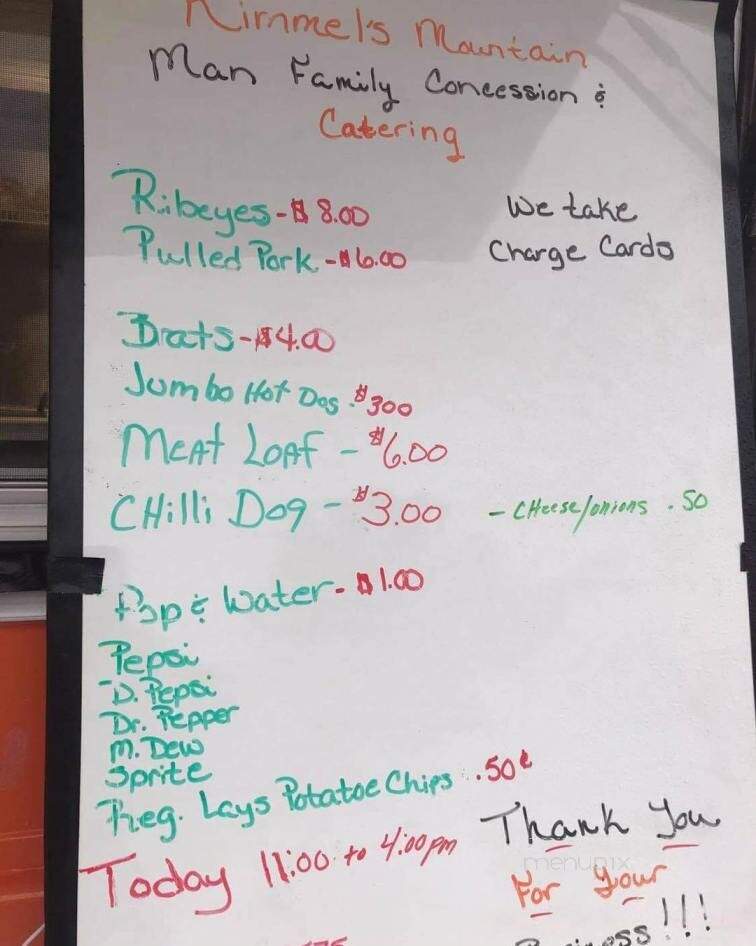 Kimmel's Mountain
Man Family Concession &
Catering
Ribeyes - $8.00
We take
Pulled Pork - $6.00
Charge Cards
Brats - $4.00
Jumbo Hot Dog - $300
Meat Loaf - $6.00
CHilli Dog - $3.00 - CHeese/onions .50
Pop & Water - $1.00
Pepsi
D. Pepsi
Dr. Pepper
M. Dew
Sprite
Reg. Lays Potatoe Chips . .50¢
Thank You
Today 11:00 to 4:00pm
menupix
For Your
Business!!!